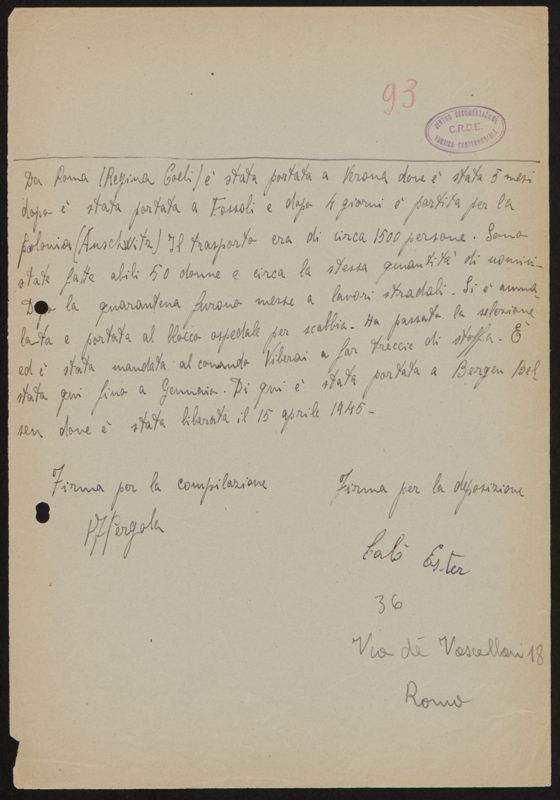 93
CENTRO DOCUMENTAZIONE
C.R.D.E.
EBRAICA CONTEMPORANEA
Da Roma (Regina Coeli) è stata portata a Verona dove è stata 3 mesi
dopo è stata portata a Fossoli e dopo 4 giorni è partita per la
Polonia (Auschvitz) Il trasporto era di circa 1500 persone. Sono
state fatte abili 50 donne e circa la stessa quantità di uomini.
Dopo la quarantena furono messe a lavori stradali. Si è amma-
lata e portata al blocco ospedale per scabbia. Ha passato la selezione
ed è stata mandata al comando Viberai a far treccie di stoffa. È
stata qui fino a Gennaio. Di qui è stata portata a Bergen Bel
sen dove è stata liberata il 15 aprile 1945-
Firma per la compilazione
Firma per la deposizione
Calò Ester
36
Via dè Vascellari 18
Roma